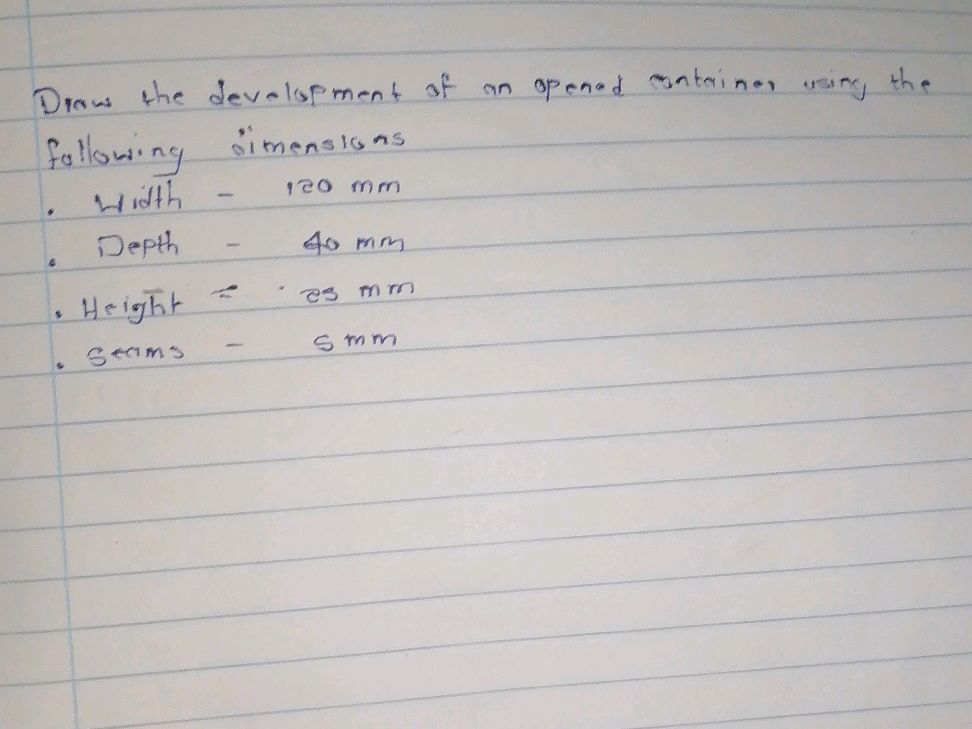 Draw the development of an opened container using the
following dimensions
. Width - 120 mm
. Depth - 40 mm
. Height = mm
. Seams - 5 mm